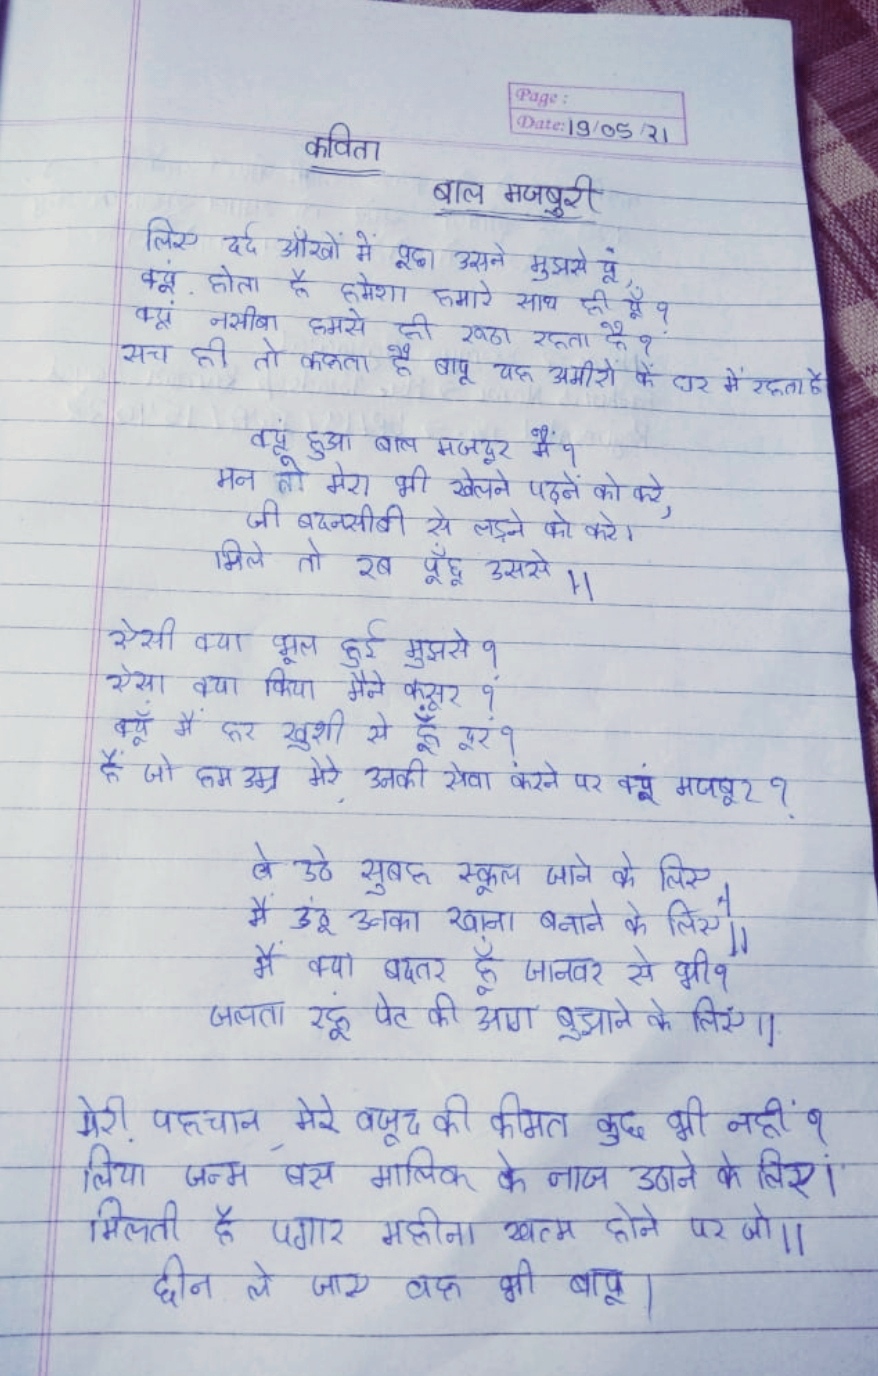 Page :
Date: 19/05/21
कविता
बाल मजबुरी
लिए दर्द आँखों में पूछा उसने मुझसे यूं,
क्यूं होता है हमेशा हमारे साथ ही यूँ ?
क्यूं नसीबा हमसे ही रूठा रहता है ?
सच ही तो कहता है बापू यह अमीरों के घर में रहता है
क्यूं हुआ बाल मजदूर मैं ?
मन तो मेरा भी खेलने पढ़नें को करे,
जी बदनसीबी से लड़ने को करे।
मिले तो रब पूँछू उससे ॥
ऐसी क्या भूल हुई मुझसे ?
ऐसा क्या किया मैंने कसूर ?
क्यूँ मैं हर खुशी से हूँ दूर ?
हैं जो हम उम्र मेरे, उनकी सेवा करने पर क्यूं मजबूर ?
वे उठे सुबह स्कूल जाने के लिए,
मैं उंठू उनका खाना बनाने के लिए॥
मैं क्या बदतर हूँ जानवर से भी?
जलता रहूं पेट की आग बुझाने के लिए॥
मेरी पहचान, मेरे वजूद की कीमत कुछ भी नहीं ?
लिया जन्म बस मालिक के नाज उठाने के लिए।
मिलती है पगार महीना खत्म होने पर जो॥
छीन ले जाए वह भी बापू।